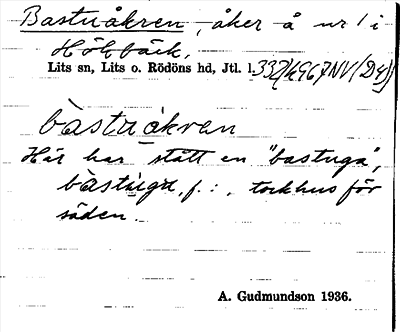 Bastuåkren, åker å nr 1 i
Hökbäck,
Lits sn, Lits o. Rödöns hd, Jtl. l.
bàstuåkren
Här har stått en "bastuga",
bàstugu, f.:, torkhus för
säden.
A. Gudmundson 1936.